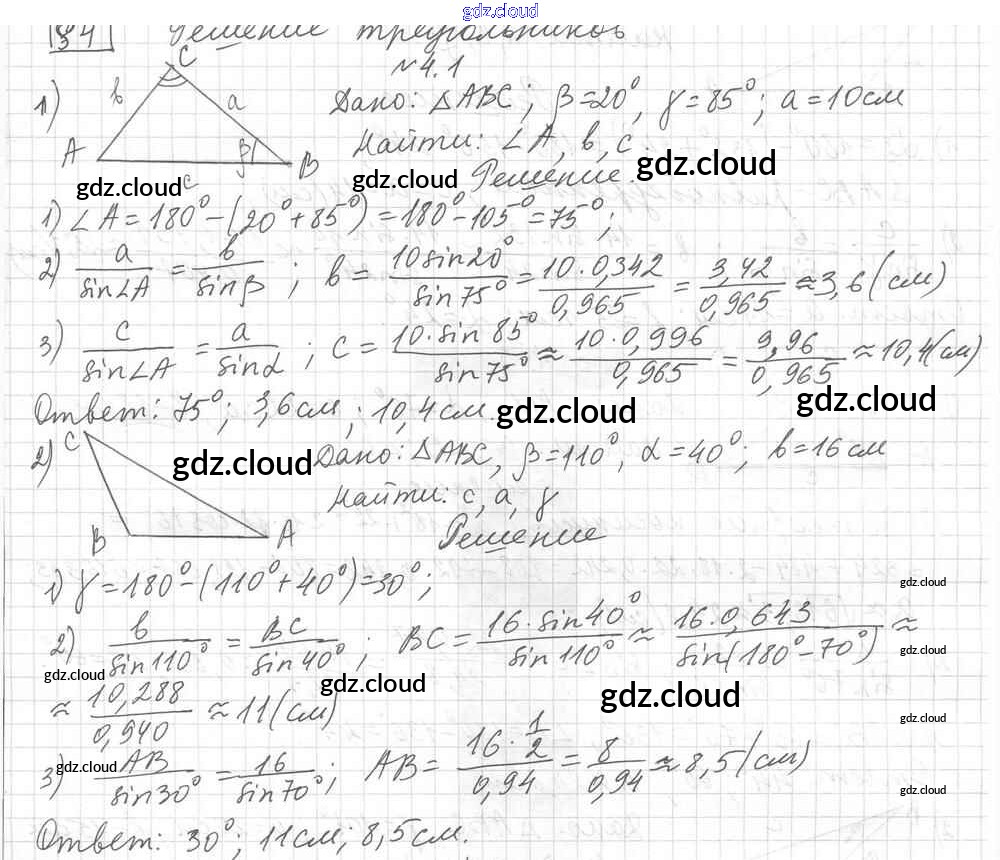 gdz.cloud
§4 Решение треугольников
№4.1
1) Дано: △ABC; β=20°, γ=85°; a=10см
Найти: ∠A, b, c.
C
b
a
A
β
B
c
gdz.cloud
gdz.cloud
gdz.cloud
Решение.
1) ∠A=180°-(20°+85°)=180°-105°=75°;
2) a/sin∠A = b/sinβ ; b = 10sin20°/sin75° = 10·0,342/0,965 = 3,42/0,965 ≈ 3,6(см)
3) c/sin∠A = a/sinα ; c = 10·sin85°/sin75° ≈ 10·0,996/0,965 = 9,96/0,965 ≈ 10,4(см)
Ответ: 75°; 3,6см; 10,4см.
gdz.cloud
gdz.cloud
2) Дано: △ABC, β=110°, α=40°; b=16см
gdz.cloud
Найти: c, a, γ
C
B
A
Решение
1) γ=180°-(110°+40°)=30°;
gdz.cloud
2) b/sin110° = BC/sin40° ; BC = 16·sin40°/sin110° ≈ 16·0,643/sin(180°-70°) ≈
gdz.cloud
gdz.cloud
gdz.cloud
gdz.cloud
≈ 10,288/0,940 ≈ 11(см)
gdz.cloud
3) AB/sin30° = 16/sin70° ; AB = 16·1/2/0,94 = 8/0,94 ≈ 8,5(см)
gdz.cloud
gdz.cloud
Ответ: 30°; 11см; 8,5см.